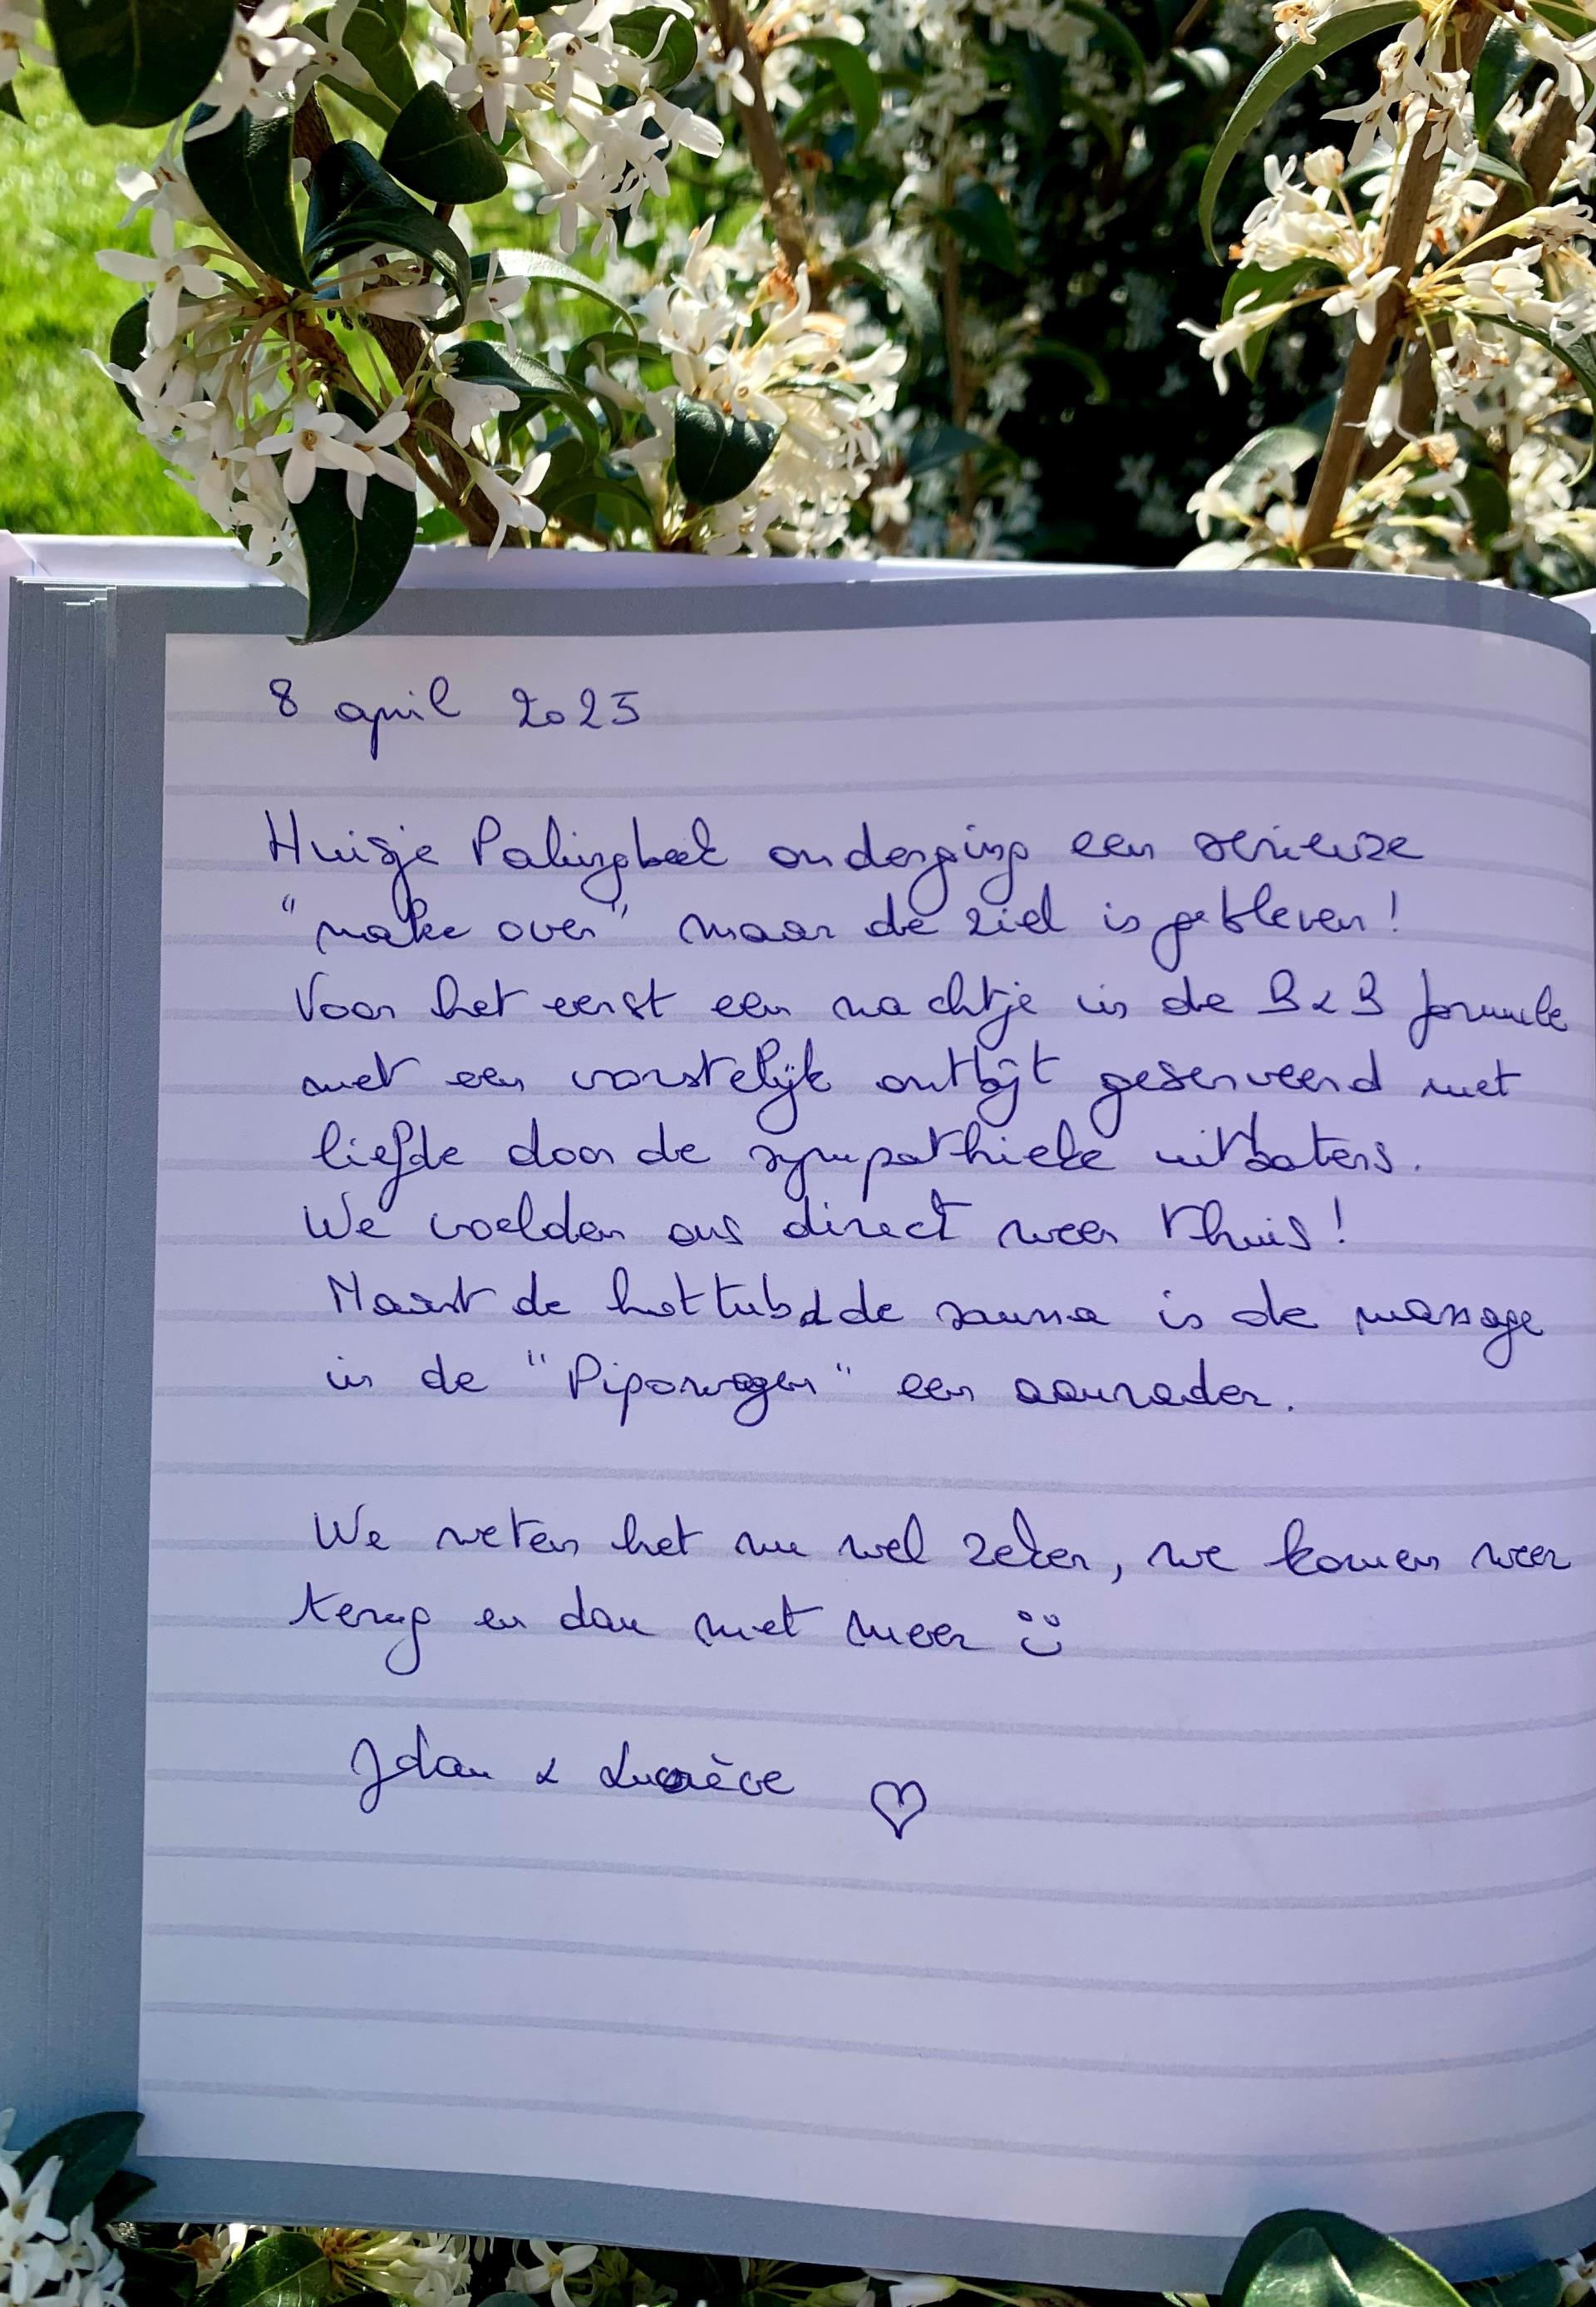 8 april 2025
Huisje Palingbeek onderging een serieuze
"make over" maar de ziel is gebleven!
Voor het eerst een nachtje in de B & B formule
met een vorstelijk ontbijt geserveerd met
liefde door de sympathieke uitbaters.
We voelden ons direct weer thuis!
Naast de hottub & de sauna is de massage
in de "Pipowagen" een aanrader.
We weten het nu wel zeker, we komen weer
terug en dan met meer
& Lucrèce